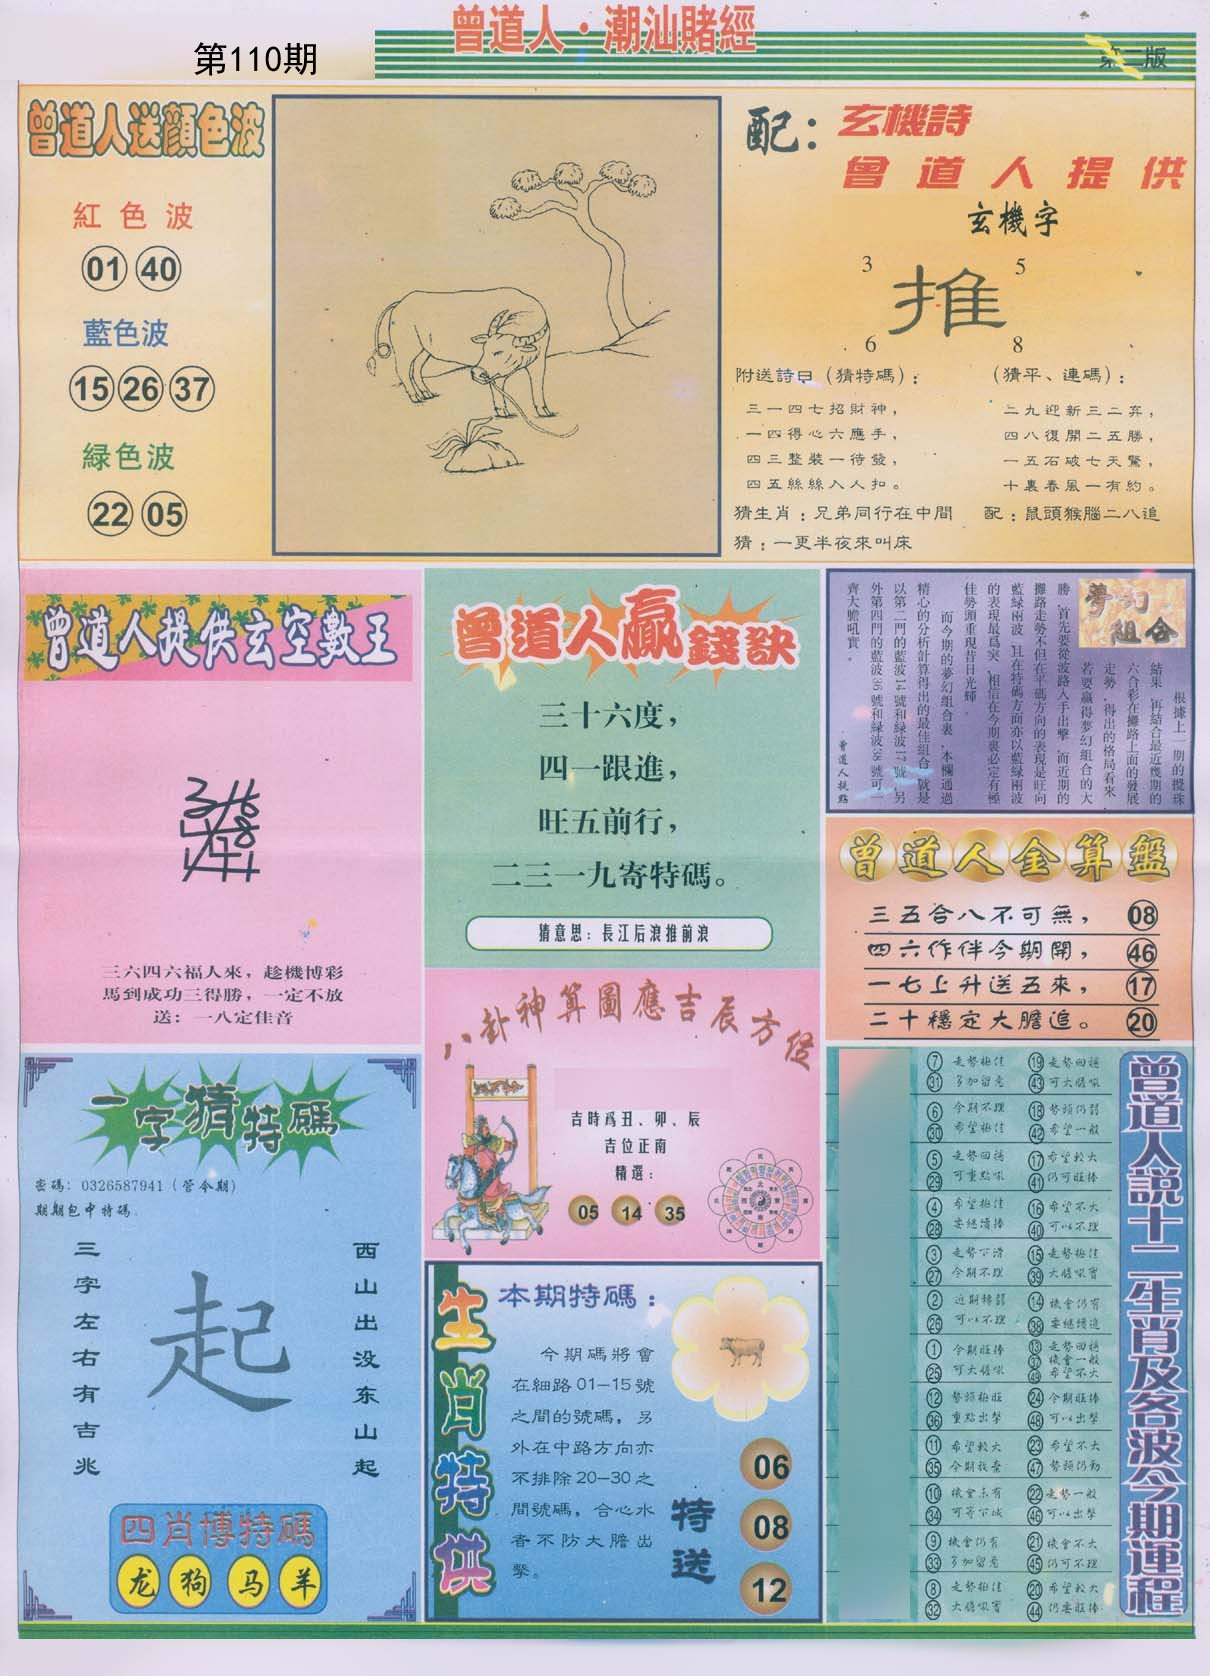 曾道人·潮汕賭經
第110期
第二版
曾道人送顔色波
紅色波
01 40
藍色波
15 26 37
緑色波
22 05
配:
玄機詩
曾道人提供
玄機字
3 5
推
6 8
附送詩曰(猜特碼):
三一四七招財神,
一四得心六應手,
四三整裝一待發,
四五絲絲入人扣。
猜生肖:兄弟同行在中間
猜:一更半夜來叫床
(猜平、連碼):
二九迎新三二弃,
四八復開二五勝,
一五石破七天驚,
十裏春風一有約。
配:鼠頭猴腦二八追
曾道人提供玄空數王
三六四六福人來,趁機博彩
馬到成功三得勝,一定不放
送:一八定佳音
曾道人贏錢訣
三十六度,
四一跟進,
旺五前行,
二三一九寄特碼。
猜意思:長江后浪推前浪
夢幻組合
根據上一期的攪珠
結果,再結合最近幾期的
六合彩在攤路上面的發展
走勢,得出的格局看來,
若要贏得夢幻組合的大
勝,首先要從波路入手出擊,而近期的
攤路走勢不但在平碼方向的表現是旺向
藍緑兩波,且在特碼方面亦以藍緑兩波
的表現最爲突,相信在今期裏必定有極
佳勢頭重現昔日光輝。
而今期的夢幻組合裏,本欄通過
精心的分析計算得出的最佳組合號是
以第二門的藍波14號和緑波17號,另
外第四門的藍波36號和緑波38號可一
齊大膽吼實。
曾道人執點
曾道人金算盤
三五合八不可無, 08
四六作伴今期開, 46
一七上升送五來, 17
二十穩定大膽追。 20
八卦神算圖應吉辰方位
吉時爲丑、卯、辰
吉位正南
精選:
05 14 35
一字猜特碼
密碼:0326587941(管令期)
期期包中特碼
三字左右有吉兆
起
西山出没东山起
四肖博特碼
龙 狗 马 羊
生肖特供
本期特碼:
今期碼將會
在細路01—15號
之間的號碼,另
外在中路方向亦
不排除20—30之
間號碼,合心水
者不防大膽出
擊。
特送
06
08
12
曾道人說十二生肖及各波今期運程
7 走勢極佳 19 走勢回穩
31 多加留意 43 可大膽吼
6 今期不理 18 勢頭仍弱
30 希望極佳 42 希望一般
5 走勢回穩 17 希望較大
29 可重點吼 41 仍可旺捧
4 希望極佳 16 希望不大
28 要繼續捧 40 可以不理
3 走勢下滑 15 走勢極佳
27 今期不理 39 大膽吼實
2 近期轉弱 14 機會仍有
26 可以不理 38 要繼續追
1 今期旺捧 13 走勢回穩
37 機會一般
25 可大膽吼 49 希望不大
12 勢頭極旺 24 今期旺捧
36 重點出擊 48 可以出擊
11 希望較大 23 希望不大
35 今期我棄 47 勢頭仍勁
10 機會未有 22 走勢一般
34 可寄下城 46 可以出擊
9 機會仍有 21 機會不大
33 多加留意 45 仍可不理
8 走勢極佳 20 希望較大
32 大膽吼實 44 仍要旺捧